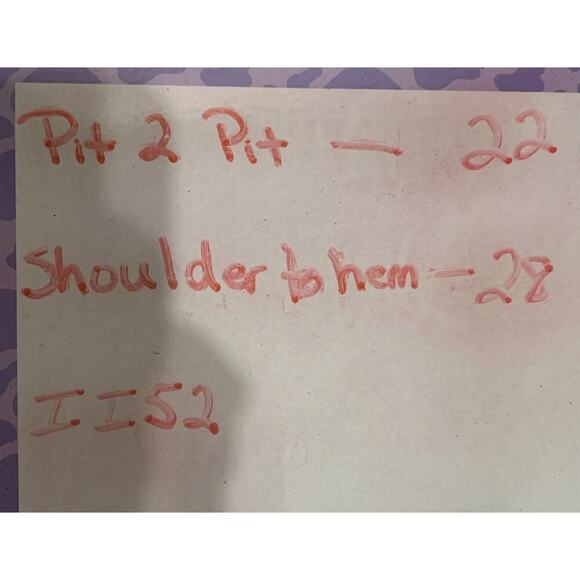 Pit 2 Pit — 22
Shoulder to hem — 28
II52